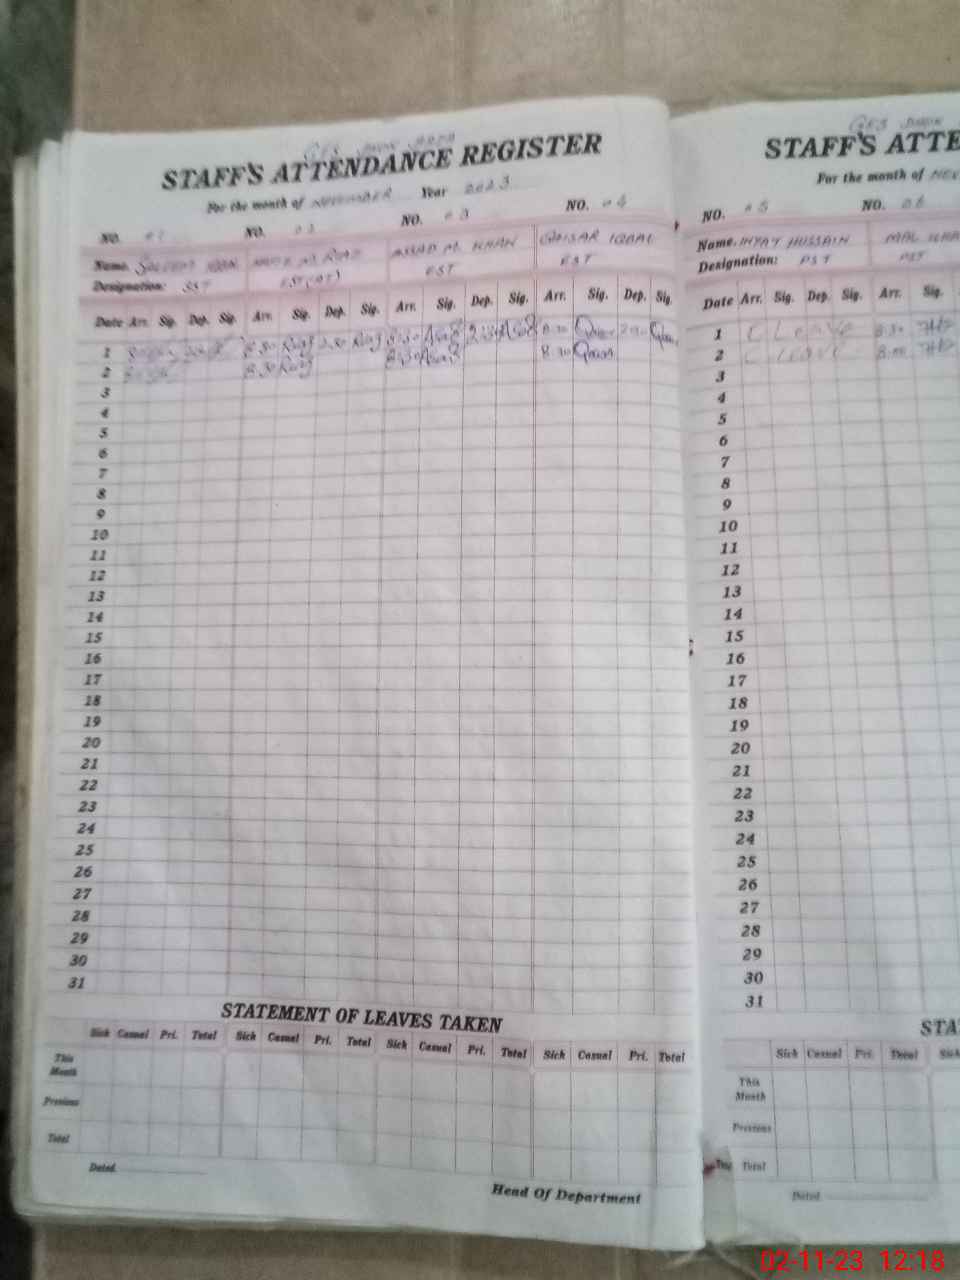 STAFF'S ATTENDANCE REGISTER
For the month of NOVEMBER Year 2023
NO. NO. 02 NO. 03 NO. 04
Name. KHAN M. RIAZ ASSAD M. KHAN QAISAR IQBAL
Designation: SST EST EST
Date Arr. Sig. Dep. Sig. Arr. Sig. Dep. Sig. Arr. Sig. Dep. Sig. Arr. Sig. Dep. Sig.
1 8:30 Riaz 2:30 Riaz 8:30 Asad 2:30 Asad 8:30
2 8:30 Riaz 8:30 Asad 8:30
3
4
5
6
7
8
9
10
11
12
13
14
15
16
17
18
19
20
21
22
23
24
25
26
27
28
29
30
31
STATEMENT OF LEAVES TAKEN
Sick Casual Pri. Total Sick Casual Pri. Total Sick Casual Pri. Total Sick Casual Pri. Total
This Month
Previous
Total
Dated
Head Of Department
GES
STAFF'S ATTE
For the month of NOV
NO. 05 NO. 06
Name. HUSSAIN
Designation: PST PST
Date Arr. Sig. Dep. Sig. Arr. Sig.
1 C Leave 8:30
2 C Leave
3
4
5
6
7
8
9
10
11
12
13
14
15
16
17
18
19
20
21
22
23
24
25
26
27
28
29
30
31
STA
Sick Casual Pri. Total Sick
This Month
Previous
Total
Dated
02-11-23 12:18